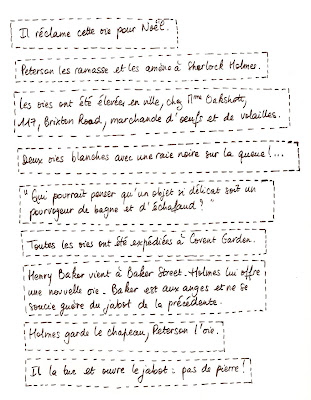 Il réclame cette oie pour Noël.
Peterson les ramasse et les amène à Sherlock Holmes.
Les oies ont été élevées en ville, chez Mme Oakshott,
117, Brixton Road, marchande d'oeufs et de volailles.
Deux oies blanches avec une raie noire sur la queue !...
"Qui pourrait penser qu'un objet si délicat soit un
pourvoyeur de bagne et d'échafaud ? "
Toutes les oies ont été expédiées à Covent Garden.
Henry Baker vient à Baker Street. Holmes lui offre
une nouvelle oie. Baker est aux anges et ne se
soucie guère du jabot de la précédente.
Holmes garde le chapeau, Peterson l'oie.
Il la tue et ouvre le jabot : pas de pierre !